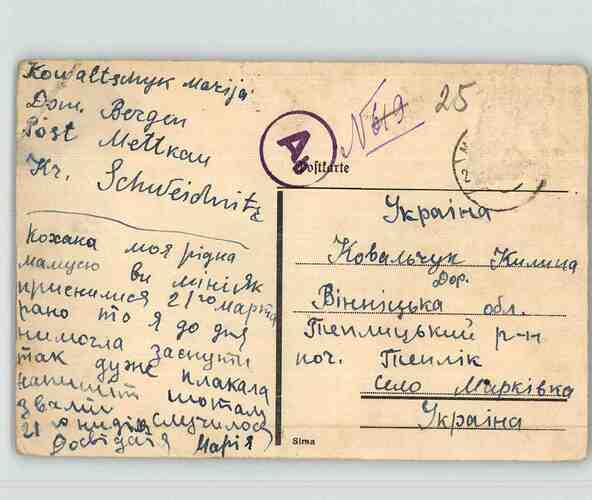 Kowaltschyk Marija
Dom. Bergen
Post Mettkau
Kr. Schweidnitz
Кохана моя рідна
мамцю ви мині як
приснилися 21го марта
рано то я до дня
нимогла заснути
так дуже плакала
напишіт шотам
звами
21 о случилос
Досвіданя Марія
A
N 619
25
Postkarte
Україна
Ковальчук Килина
Дор.
Вінніцька обл.
Теплицький р-н
поч. Теплік
село Мирківка
Україна
Sima